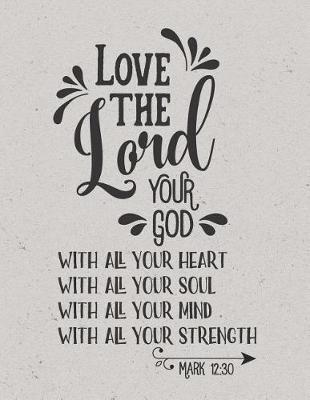 LOVE
THE
Lord
YOUR
GOD
WITH ALL YOUR HEART
WITH ALL YOUR SOUL
WITH ALL YOUR MIND
WITH ALL YOUR STRENGTH
MARK 12:30